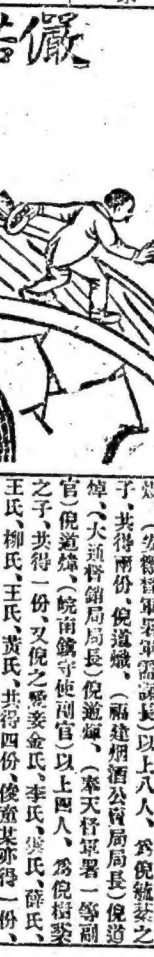 儼
(安徽督軍署軍需課長)以上八人、為倪毓棻之
子、共得兩份、倪道熾、(福建烟酒公賣局局長)倪道
焯、(大通督銷局局長)倪道煇、(奉天督軍署一等副
官)倪道煒、(皖南鎮守使副官)以上四人、為倪樹棻
之子、共得一份、又倪之愛妾金氏、李氏、吳氏、薛氏、
王氏、柳氏、王氏、黃氏、共得四份、俊童某亦得一份、